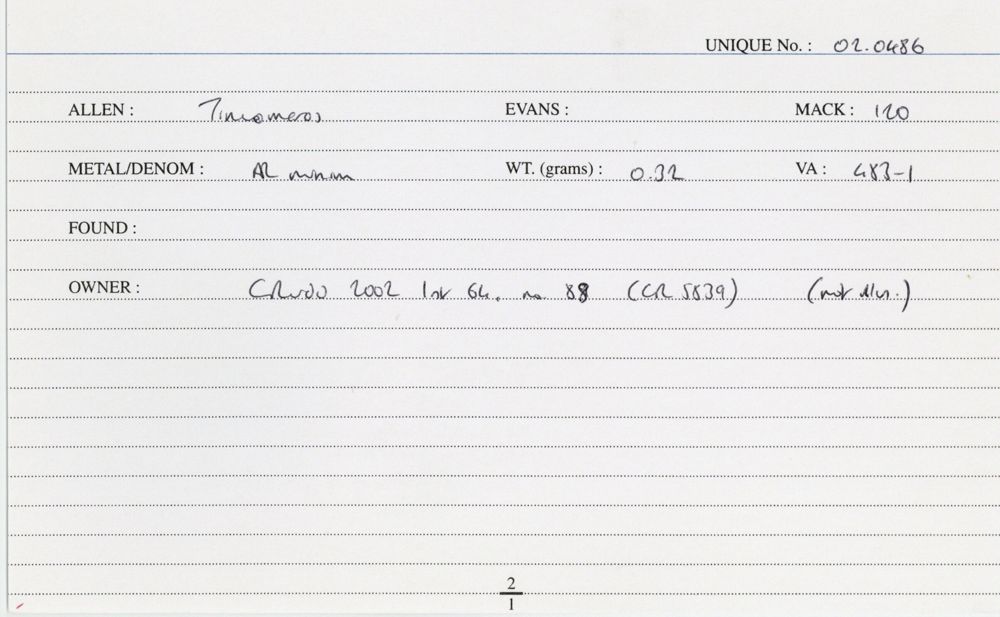 UNIQUE No. : 02.0486
ALLEN : Tincomeros EVANS : MACK : 120
METAL/DENOM : AR minim WT. (grams) : 0.32 VA : 483-1
FOUND :
OWNER : 2002 no 88 (CR 5839) (not illus.)
2
1